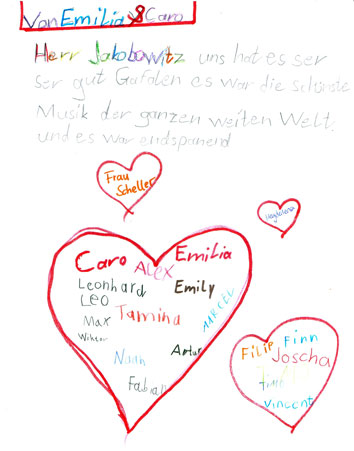 Von Emilia & Caro
Herr Jakobowitz uns hat es ser
ser gut Gafalen es war die schönste
Musik der ganzen weiten Welt.
und es war endspanend
Frau
Scheller
Caro Emilia
Alex
Leonhard Emily
Leo
Max Tamina MARCEL
Wiktor
Noah Artur
Fabian
Finn
Filip Joscha
Vincent